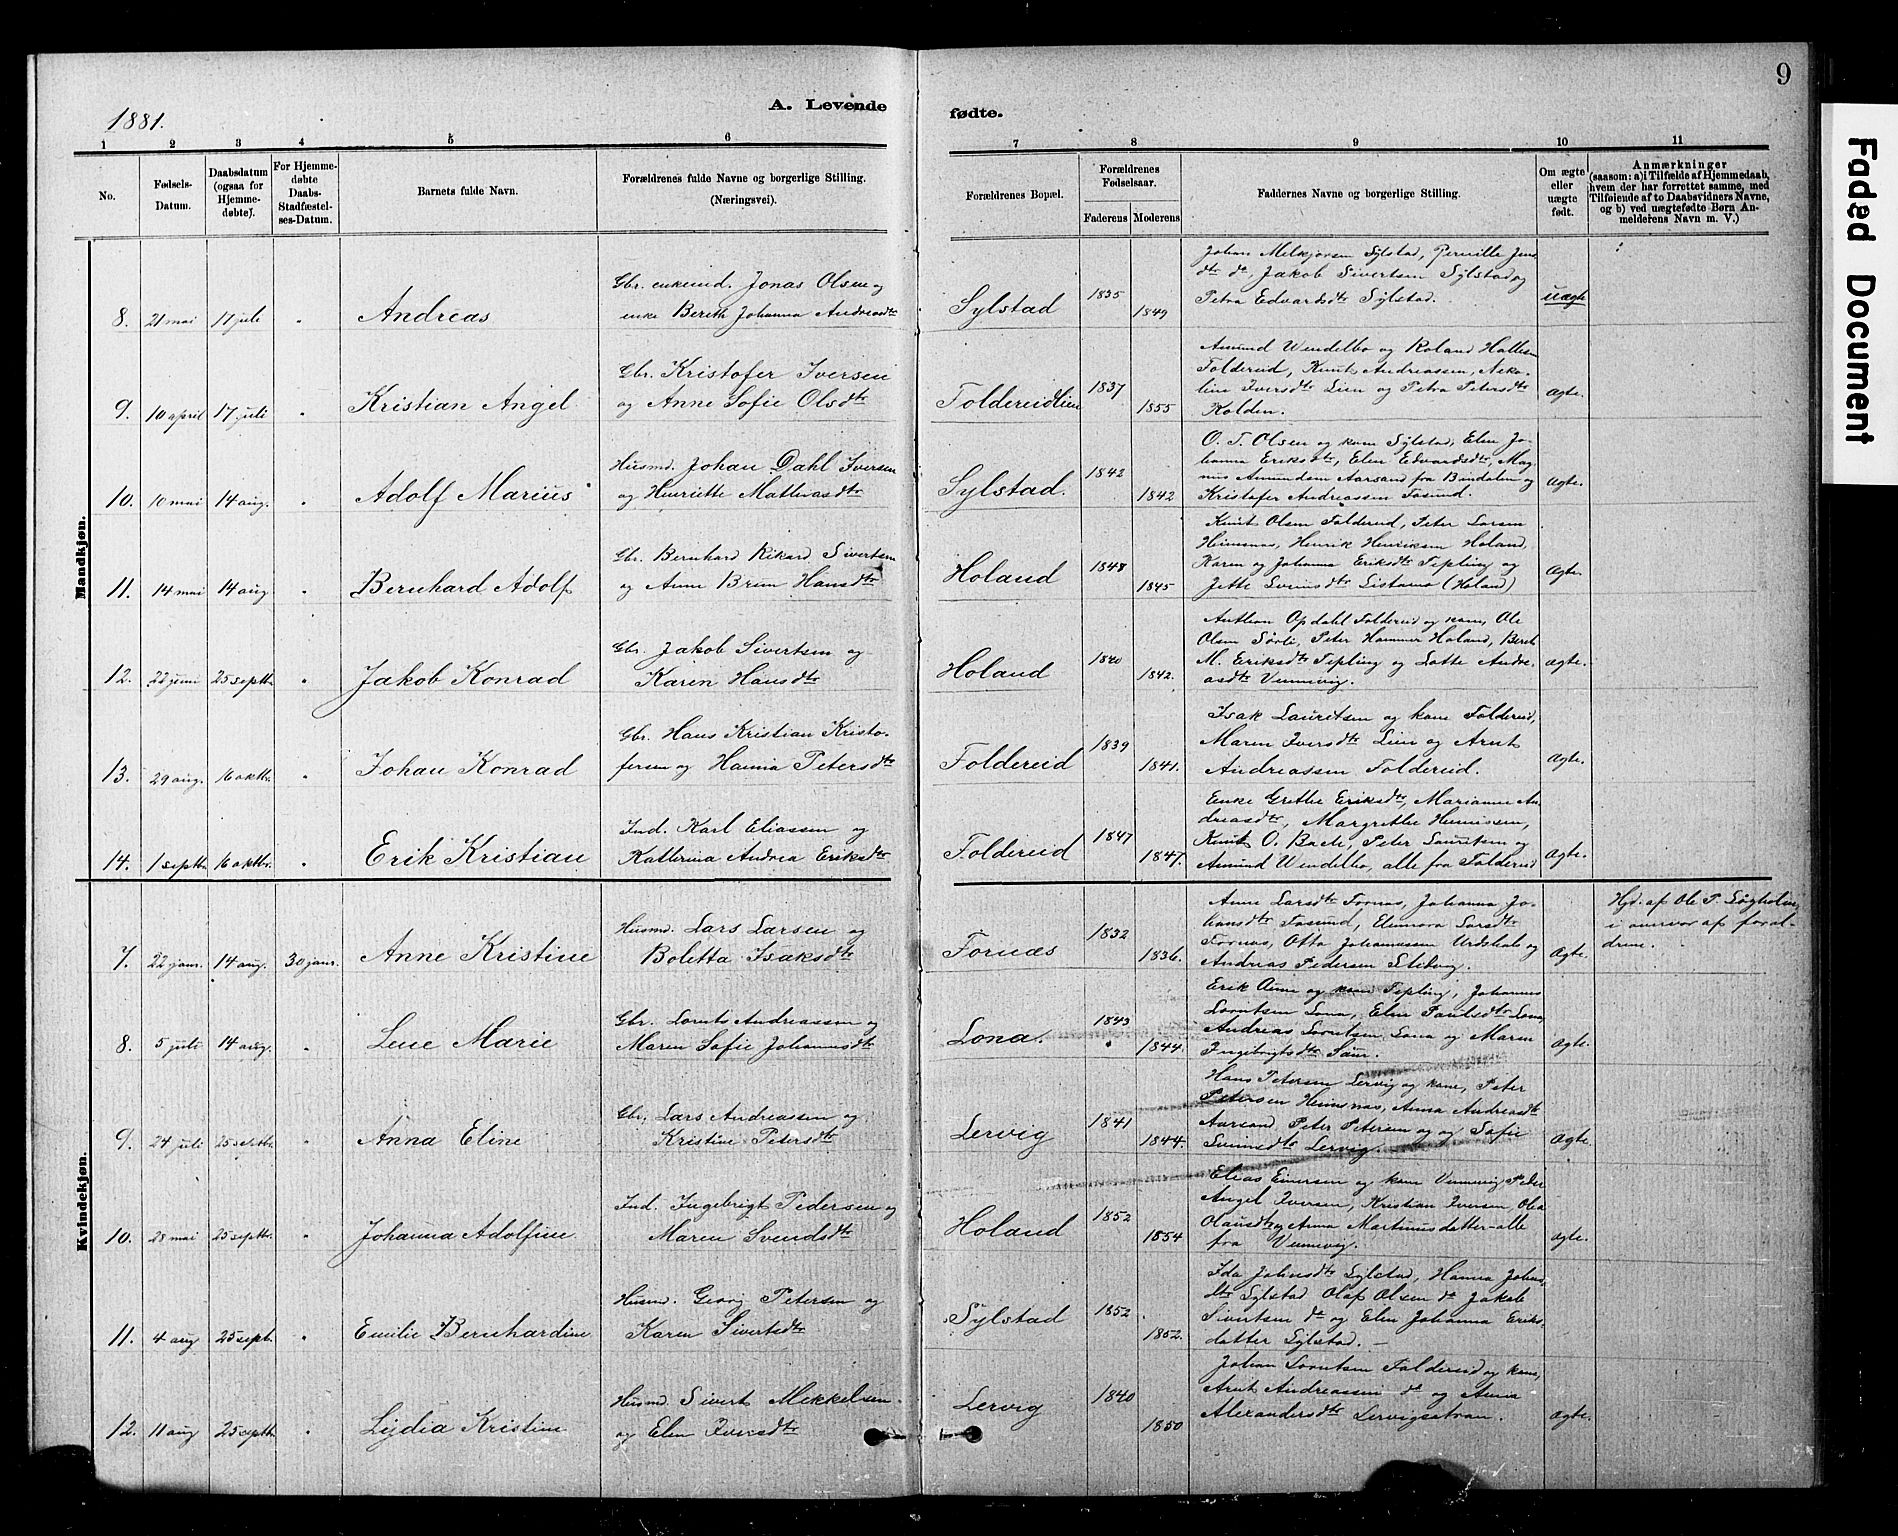 9
1881.
A. Levende fødte.
1 2 3 4 5 6 7 8 9 10 11
No.
Fødsels-Datum.
Daabsdatum (ogsaa for Hjemme-døbte).
For Hjemme-døbte Daabs-Stadfæstel-ses-Datum.
Barnets fulde Navn.
Forældrenes fulde Navne og borgerlige Stilling. (Næringsvei).
Forældrenes Bopæl.
Forældrenes Fødselsaar.
Faderens Moderens
Faddernes Navne og borgerlige Stilling.
Om ægte eller uægte født.
Anmærkninger
(saasom: a) i Tilfælde af Hjemmedaab,
hvem der har forrettet samme, med
Tilføiende af to Daabsvidners Navne,
og b) ved uægtefødte Børn An-
melderens Navn m. V.)
Mandkjøn.
8. 21 mai 11 juli " Andreas
Gbr. enkemd. Jonas Olsen og
enke Berith Johanna Andreasdtr
Sylstad 1835 1849
Johan Melkjorsen Sylstad, Pernille Jens
dtr do, Jakob Sivertsen Sylstad og
Petra Edvardsdtr Sylstad.
uægte
9. 10 april 17 juli " Kristian Angel
Gbr. Kristofer Iversen
og Anne Sofie Olsdtr
Foldereidlien 1837 1855
Amund Wendelbo og Roland
Foldereid, Knut Andreassen,
Iversdtr Lien og Petra Petersdtr
Kolden.
ægte.
10. 10 mai 14 aug. " Adolf Marius
Husmd. Johan Dahl Iversen
og Henriette Mathiasdtr
Sylstad. 1842 1842
O. T. Olsen og kone Sylstad, Elen Jo-
hanna Eriksdtr, Elen Edvardsdtr, Mag-
nus Amundsen Aarsand fra Bindalen og
Kristofer Andreassen Fosund.
ægte.
11. 14 mai 14 aug " Bernhard Adolf
Gbr. Bernhard Rikard Sivertsen
og Anne Hansdtr
Holand 1848 1845
Knut Olsen Foldereid, Peter Larsen
Heimsnæs, Henrik Henriksen Holand,
Karen og Johanna Eriksdtr Tepling og
Jette (Holand)
ægte.
12. 22 juni 25 septbr. " Jakob Konrad
Gbr. Jakob Sivertsen og
Karen Hansdtr
Holand 1840 1842.
Anthon Opdahl Foldereid og kone, Ole
Olsen Sørli, Peter Hammer Holand, Berit
M. Eriksdtr Tepling og Lotte Andre-
asdtr Vennevig.
ægte.
13. 29 aug. 16 oktbr. " Johan Konrad
Gbr. Hans Kristian Kristo-
fersen og Hanna Petersdtr
Foldereid 1839 1841.
Isak Lauritsen og kone Foldereid,
Maren Iversdtr Lien og Arnt
Andreassen Foldereid.
ægte.
14. 1 septbr. 16 oktbr. " Erik Kristian
Ind. Karl Eliassen og
Kathrina Andrea Eriksdtr
Foldereid 1847 1847.
Enke Grethe Eriksdtr, Marianne An-
dreasdtr, Margrethe
Knut O. Bach, Peter Lauritsen og
Amund Wendelbo, alle fra Foldereid
ægte.
Kvindekjøn.
7. 22 janr. 14 aug. 30 janr. Anne Kristine
Husmd. Lars Larsen og
Boletta Isaksdtr
Fornæs 1832 1836.
Anne Larsdtr Fornæs, Johanna Jo-
hansdtr Fosund, Elenora Larsdtr
Fornæs, Otto Johannessen og
Andreas Pedersen
ægte.
Hjd. af Ole P.
i nærvær af foræl-
drene.
8. 5 juli 14 aug. " Lene Marie
Gbr. Lornts Andreassen og
Maren Sofie Johannsdtr
Lona. 1843 1844.
Erik og kone Tepling, Johannes
Lorntsen Lona, Elen Paulsdtr Lona,
Andreas Lorntsen Lona og Maren
Ingebrigtsdtr
ægte.
9. 24 juli 25 septbr. " Anna Eline
Gbr. Lars Andreassen og
Kristine Petersdtr
Lervig 1841 1844.
Hans Petersen Lervig og kone, Peter
Petersen Heimsnæs, Anna Andreasdtr
Aarsand Peter Petersen og og Sofie
Lervig.
ægte.
10. 28 mai 25 septbr. " Johanna Adolfine
Ind. Ingebrigt Pedersen og
Maren Svendsdtr
Holand 1852 1854
Elias Einersen og kone Vennevig, Peter
Angel Iversen, Kristian Iversen, Olea
Olausdtr og Anna Martinusdatter - alle
fra Vennevig.
ægte.
11. 4 aug 25 septb. " Emilie Bernhardine
Husmd. Georg Petersen og
Karen Sivertsdtr
Sylstad 1852 1852.
Ida Johnsdtr Sylstad, Hanna Johns-
dtr Sylstad Olaf Olsen do Jakob
Sivertsen do og Elen Johanna Eriks-
datter Sylstad. —
12. 11 aug 25 septbr. " Lydia Kristine
Husmd Sivert Mikkelsen
og Elen Iversdtr
Lervig 1840 1850
Johan Lorntsen Foldereid og kone,
Arnt Andreassen do og Anna
Alexandersdtr
ægte.
Faded Document